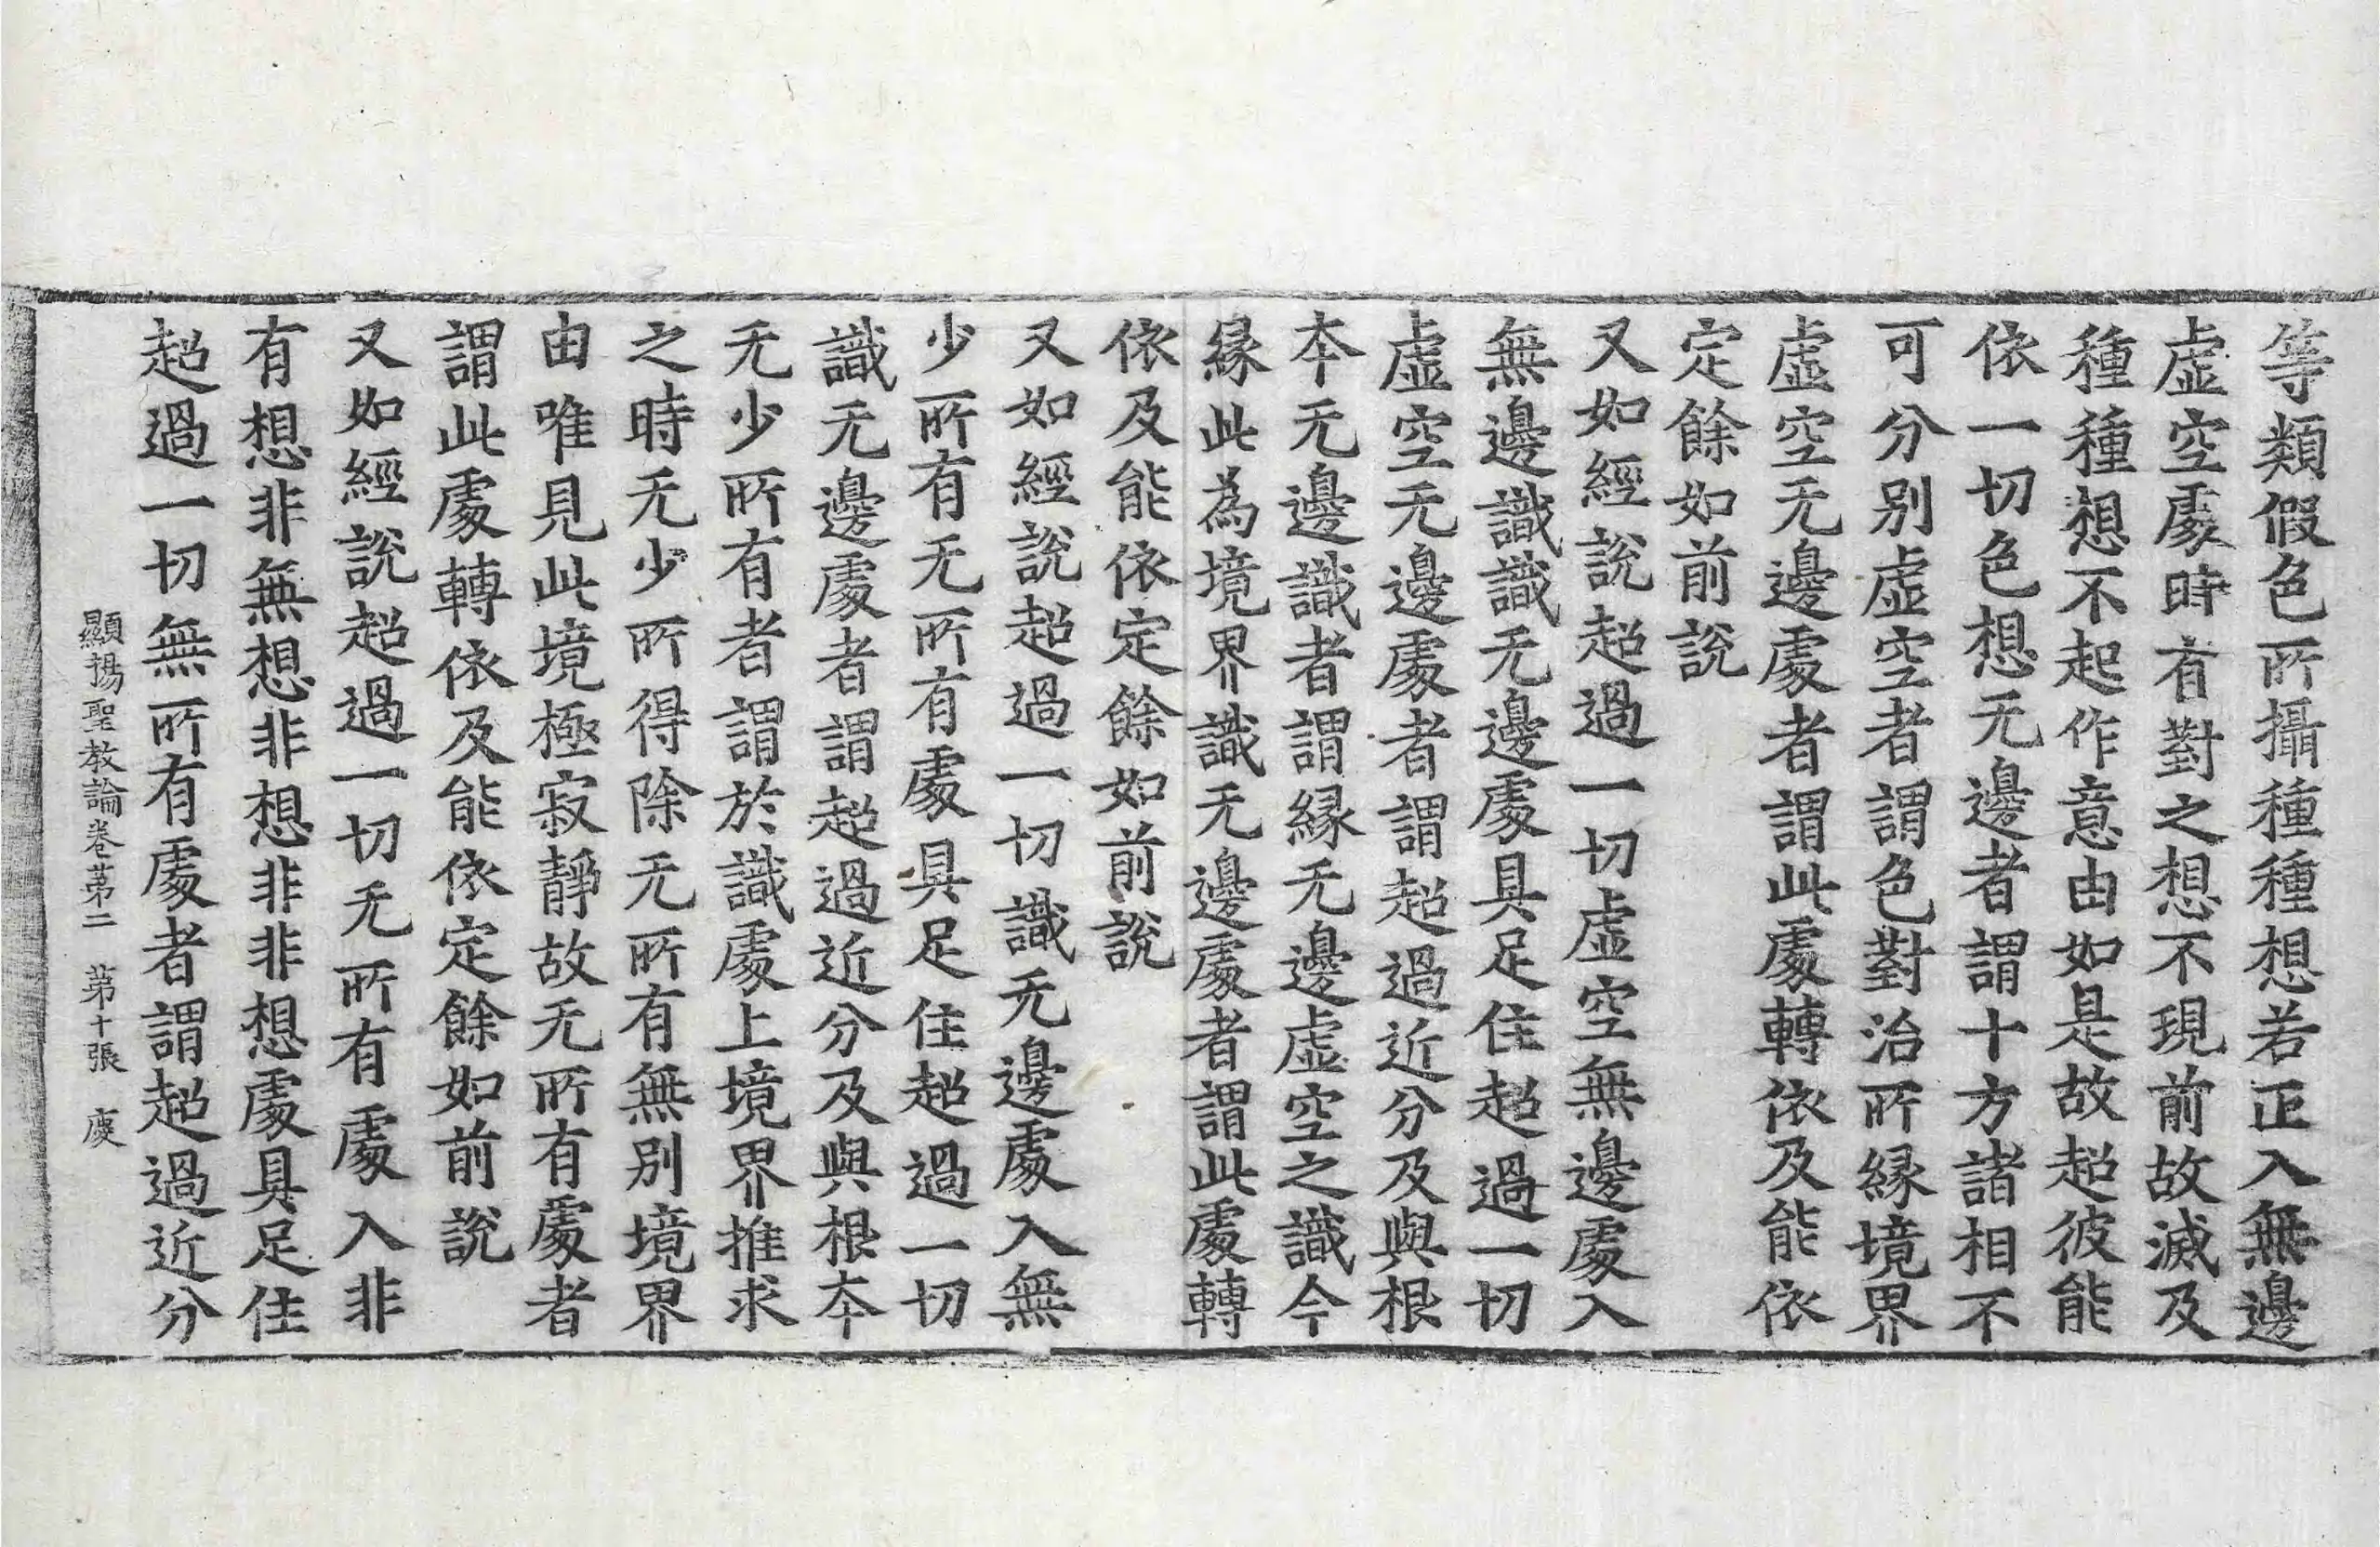 等類假色所攝種種想若正入無邊
虛空處時有對之想不現前故滅及
種種想不起作意由如是故超彼能
依一切色想无邊者謂十方諸相不
可分别虛空者謂色對治所縁境界
虛空无邊處者謂此處轉依及能依
定餘如前說
又如經說超過一切虛空無邊處入
無邊識識无邊處具足住超過一切
虛空无邊處者謂超過近分及與根
本无邊識者謂縁无邊虛空之識今
縁此為境界識无邊處者謂此處轉
依及能依定餘如前說
又如經說超過一切識无邊處入無
少所有无所有處具足住超過一切
識无邊處者謂超過近分及與根本
无少所有者謂於識處上境界推求
之時无少所得除无所有無别境界
由唯見此境極寂靜故无所有處者
謂此處轉依及能依定餘如前說
又如經說超過一切无所有處入非
有想非無想非想非非想處具足住
超過一切無所有處者謂超過近分
顯揚聖教論卷苐二　苐十張　虔